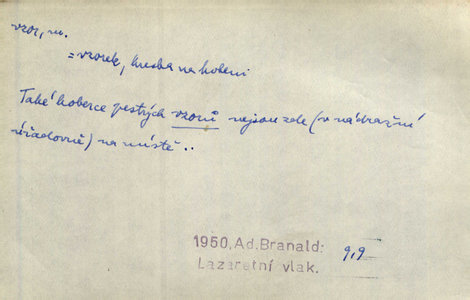 vzor, m.
= vzorek, kresba na koberci
Také koberce pestrých vzorů nejsou zde (v nádražní
úřadovně) na místě ..
1950, Ad. Branald: 9,9
Lazaretní vlak.